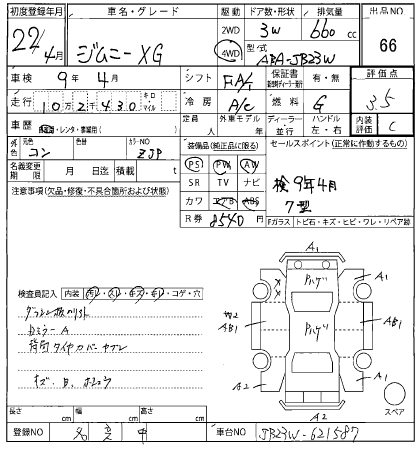 初度登録年月
車名・グレード
駆動
ドア数・形状
排気量
出品NO
22/4月
ジムニー XG
2WD
4WD
3W
660 cc
型式
ABA-JB23W
66
車検
9年4月
シフト
FA/T
保証書
有・無
評価点
3.5
走行
10万2千430
キロ
マイル
冷房
A/C
燃料
G
車歴
レンタ・事業用( )
定員
人
外車モデル
年
ディーラー
並行
ハンドル
左・右
内装評価
C
外色
元色
コン
色替
カラーNO
ZJP
装備品(純正品に限る)
PS
PW
AW
SR
TV
ナビ
カワ
エアB
ABS
R券
8540円
セールスポイント(正常に作動するもの)
検9年4月
7型
名義変更期限
月
日迄
積載量
t
注意事項(欠品・修復・不具合箇所および状態)
Fガラス
トビ石・キズ・ヒビ・ワレ・リペア跡
検査員記入
内装
汚レ・スレ・キズ・キレ・コゲ・穴
DミラーA
背面タイヤカバーヤブレ
A1
A1
AB1
AB1
A2
A1
A2
パハゲ
パハゲ
スペア
長さ
cm
幅
cm
高さ
cm
登録NO
車台NO
JB23W-621587